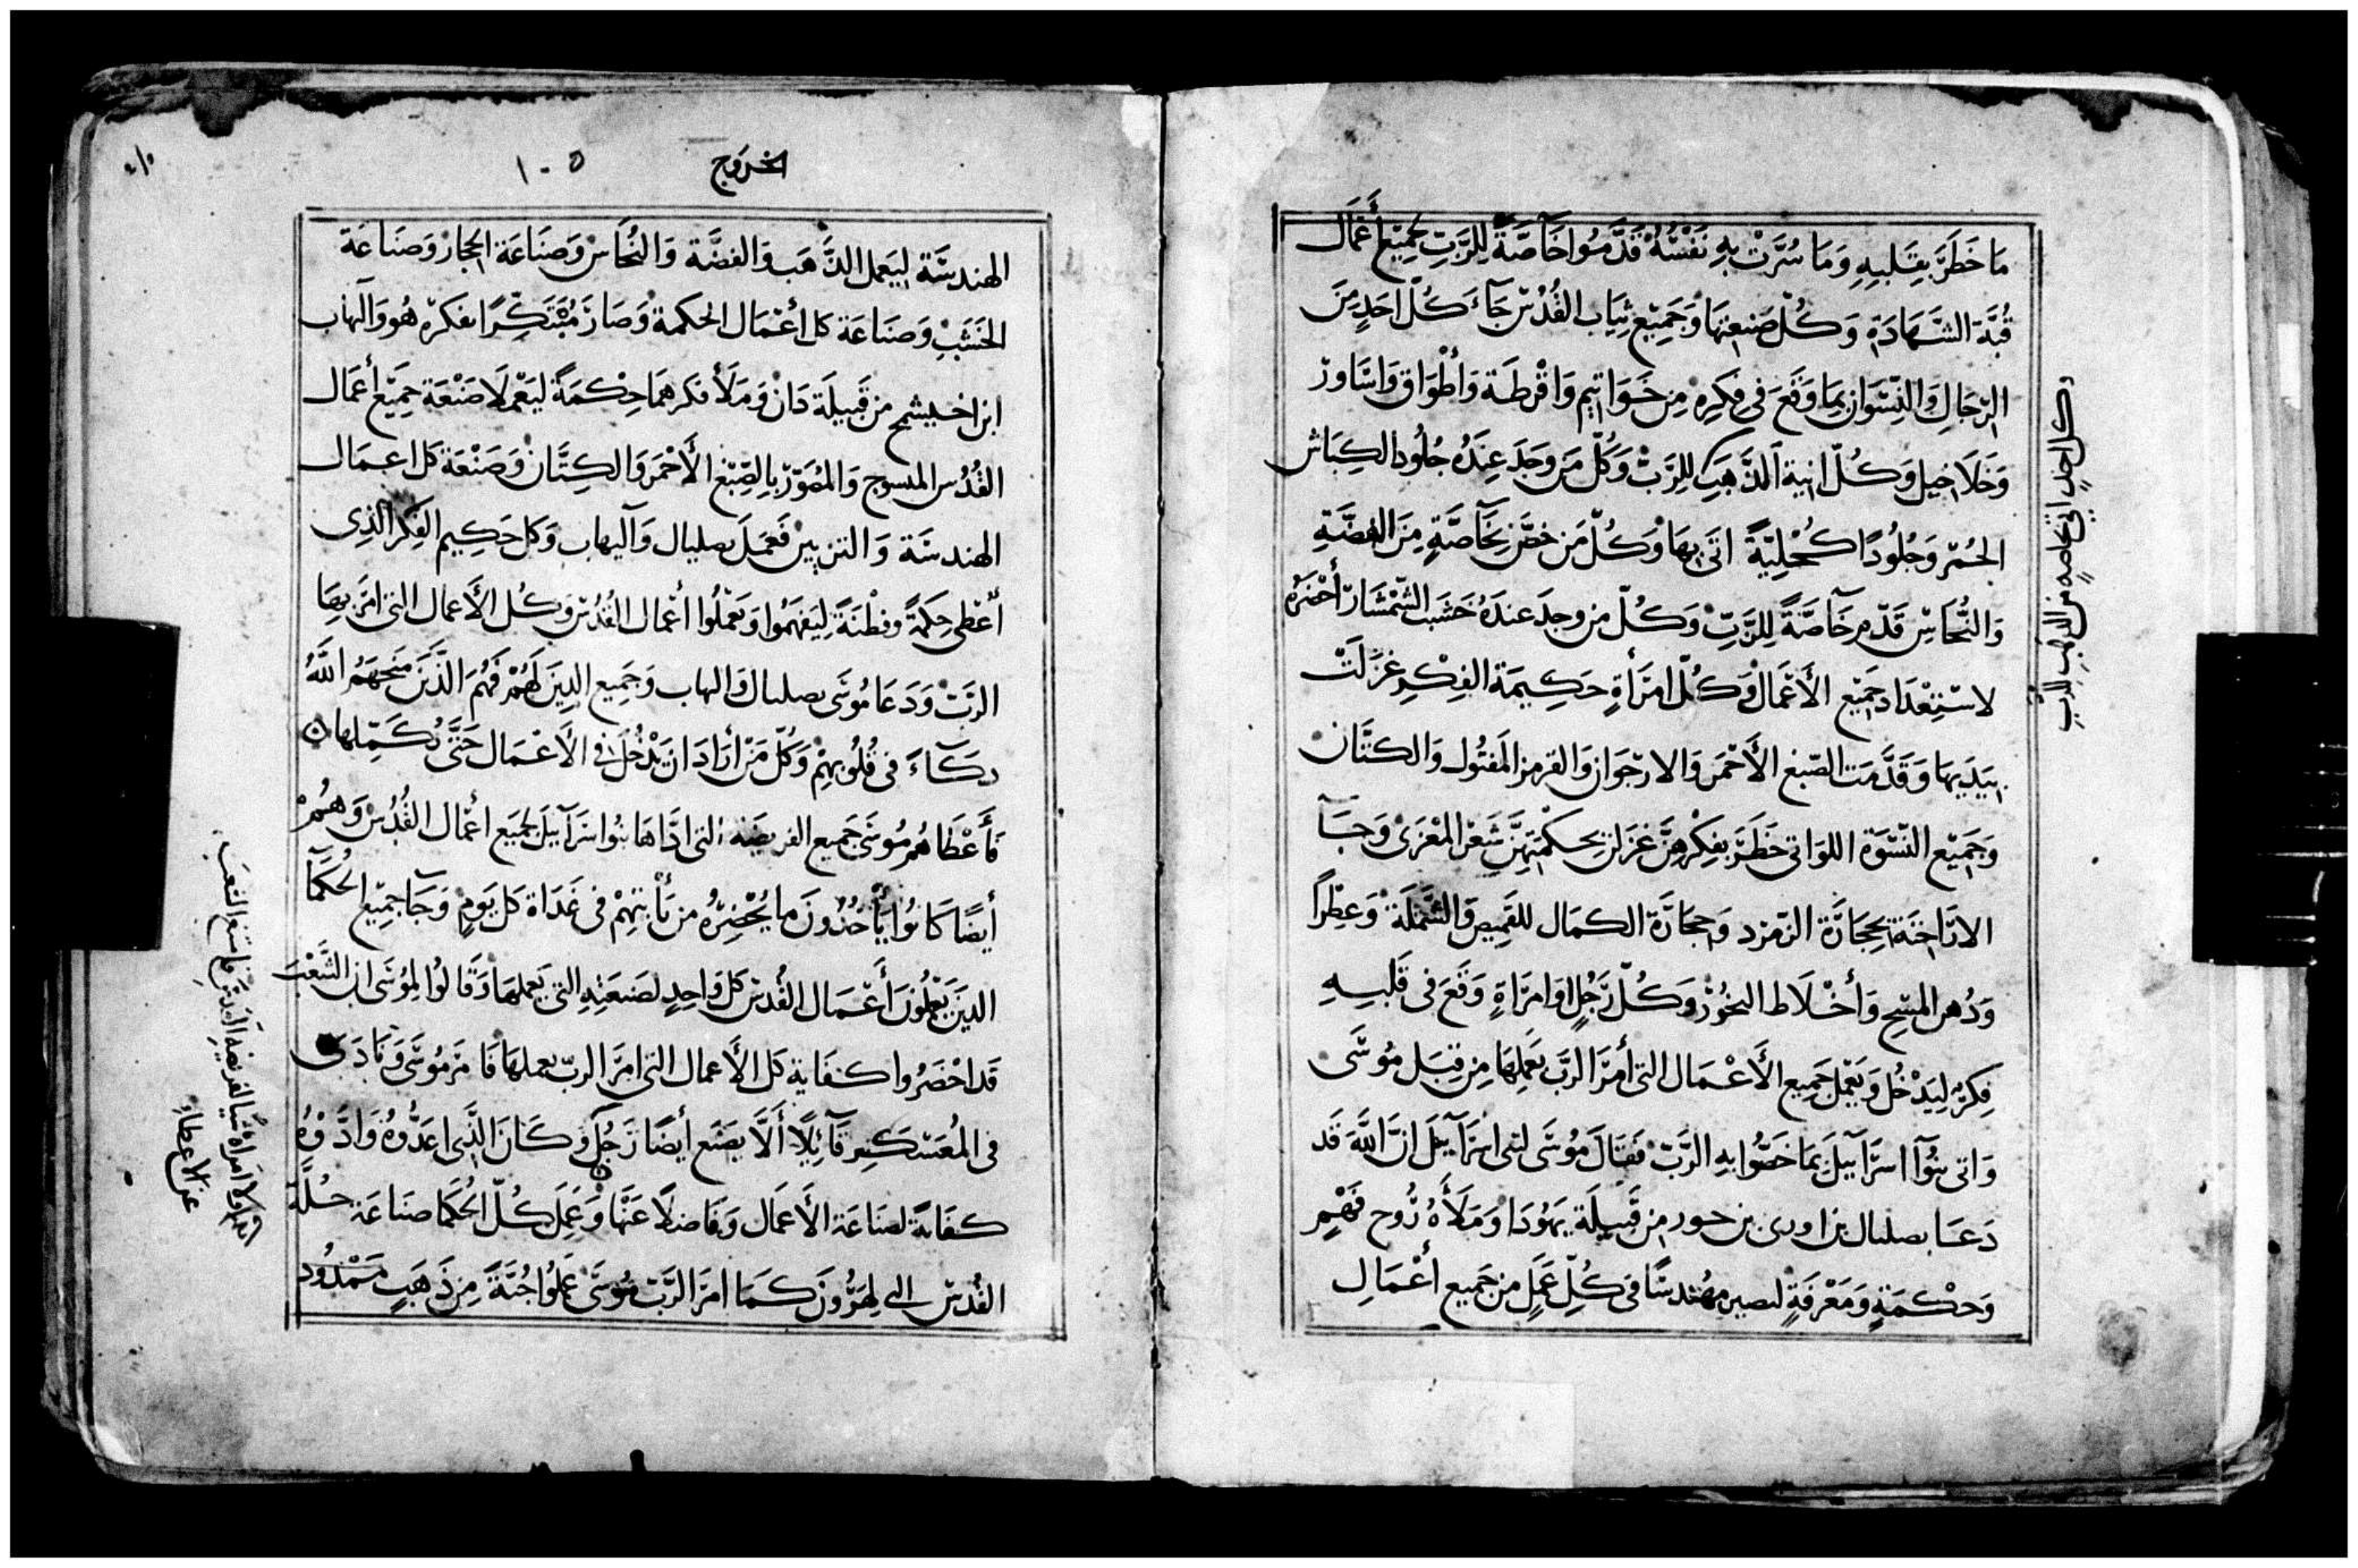 مَا خَطَرَ بِقَلبِهِ وَمَا سُرَّتْ بِهِ نَفْسُهُ قَدَّمُوا خَآصَّةً لِلرَّبِّ لجمِيْع أَعْمَال
قُبَّة الشَّهَادَةِ وَكُلّ صَنعتِهَا وَجَمِيْع ثِيَاب القُدْسْ جَآءَ كُلّ احَدٍ مِنَ
الرّجَالِ وَالنِّسْوَان بِمَا وَقَعَ فى فِكرِهِ مِن خَوَاتِيم وَاقْرطَة وَأطْوَاق وَاسَّاور
وَخَلَاخِيل وَكُلّ انية الذَّهَبِ لِلرَّبّْ وَكُلّ مَن وجَدَ عِندَهُ جُلُود الكِبَاش
الحُمْر وَجُلُودًا كُحْلِيَّةً اتَى بهَا وَكُلّ مَن خطَر بخَآصَّةٍ مِنَ الفضَّةِ
وَالنُّحَاسِ قَدّم خَآصَّةً لِلرَّبّْ وَكُلّ من وجدَ عندَهُ خَشَب الشّمْشَار أحْضَرَهُ
لاستِعْدَاد جَمِيْع الأَعْمَال وَكُلّ امرَأةٍ حَكِيمَة الفِكْرِ غزَلَتْ
بيَدَيهَا وَقَدَّمَت الصّبغ الأَحْمَر وَالارجوَان وَالقرمز المفتُول وَالكتَّان
وَجَمِيْع النّسْوَة اللوَاتى خَطَرَ بفِكْرهِنَّ غزَلن بحِكْمتهِنَّ شَعْر المْعْزَى وَجَآ
الارَاخنَة بحِجَارَة الزمرد وَحجَارَة الكمَال للقَمِيصِ وَالشَّملَة وَعِطرًا
وَدُهن المسْحِ وَأخْلَاط البخُورْ وَكُلّ رَجُلٍ اوَامرَاةٍ وَقَعَ فى قَلبِهِ
فِكرُهُ لِيَدْخُل وَيَعْمَل جَمِيع الأَعْمَال التى أمَرَ الرَّبّ بَعَمِلِهَا مِن قِبَل مُوسَى
وَاتى بنُوآ اسرَآييلَ بَمَا خَصُّوا بهِ الرَّبّ فَقَالَ مُوسَى لبنى اسرَآييْلَ انَّ اللَّهَ قَد
دَعَا بصلىال بن اورى بن حور من قَبِيلَة يَهُودَا وَمَلَأَهُ رُوح فَهْمٍ
وَحْكْمَةٍ وَمَعْرفَةٍ ليصير مهُندسًا فى كُلِّ عَمَلٍ من جَميع أعْمَالِ
وكل احدٍ اتى بخاصةٍ من الذهب للربّ
الخروج
١٠٥
الهندسَة ليَعمل الذَّهَب وَالفضَّة وَالنُّحَاسْ وَصنَاعَة الحجَارْ وَصنَاعَة
الخَشَبْ وَصنَاعَة كل أعْمَال الحكمة وَصَارَ مُبْتَكِرًا بفكرهِ هُو وَآلهاب
ابن اخيشمخ من قَبِيلَة دَان وَمَلَأ فكرهمَا حِكْمَةً ليَعْملَا صَنْعَة جَمِيْع أعمَال
القُدُس المنسوج وَالمُصَوّر بِالصِّبْغ الأَحْمَر وَالكِتَّان وَصَنْعَة كل اعمَال
الهندسَة وَالتزيين فَعَمَلَ بصليال وَآليهاب وَكل حَكِيم الفِكر الذِى
أُعْطِى حِكمةً وَفطْنَةً لِيَفهَمُوا وَيَعْمَلُوا أعمال القُدُسْ وَكُل الأَعمال التى امَرَ بهَا
الرَّبّ وَدَعَا مُوسَى بصلىال وَالهاب وَجَمِيع الذِينَ لَهُمْ فَهُم الذَّيْنَ منَحهَمُ اللَّهُ
ذكَآءً فى قُلُوبهِمْ وَكُلّ مَنْ أرَادَ ان يَدْخُلَ فى الأَعْمَال حَتَّى تُكَمّلهَا ٥
فَأَعْطَاهُم مُوسَى جَميع الفريضه التى ادَّاهَا بنُوا سرَآييلَ لجميَع اعْمَال القُدُسْ وَهُمْ
أيضًا كَانُوا يَأْخذُونَ ما يُحْضِرُهُ من يَأْتيهِمْ فى غَدَاة كل يَومٍ وَجَآ جَمِيْع الحُكمَآ
الذينَ يَعْمَلُونَ أَعْمَال القُدس كل وَاحِدٍ لصَنعَتِهِ التى يَعملهَا وَقَالُوا لِمُوسَى ان الشَّعْبَ
قَد احْضَرُوا كفَاية كل الأَعمال التى امَرَ الربّ بعملهَا فَامر مُوسَى وَنادَى
فى المُعَسْكرِ قَآئِلًا أَلَّا يَصْنَع أيضًا رَجُلٌ وَكَانَ الذَّى اعَدُّوهُ وَادَّوْهُ
كفَايةً لصنَاعَة الأَعمَال وَفَاضلًا عَنْهَا وَعَمِلَ كُلّ الحُكمَا صنَاعَة حُلَّةَ
القُدسْ التى لِهَرُونَ كَمَا امَرَ الرَّبّ مُوسَى عَمِلُوا جُبَّةً مِن ذَهَبٍ مَمْدُود
ولا امراة شيًا لفريضة القدس فامتنع الشعب
عن الاعطاء